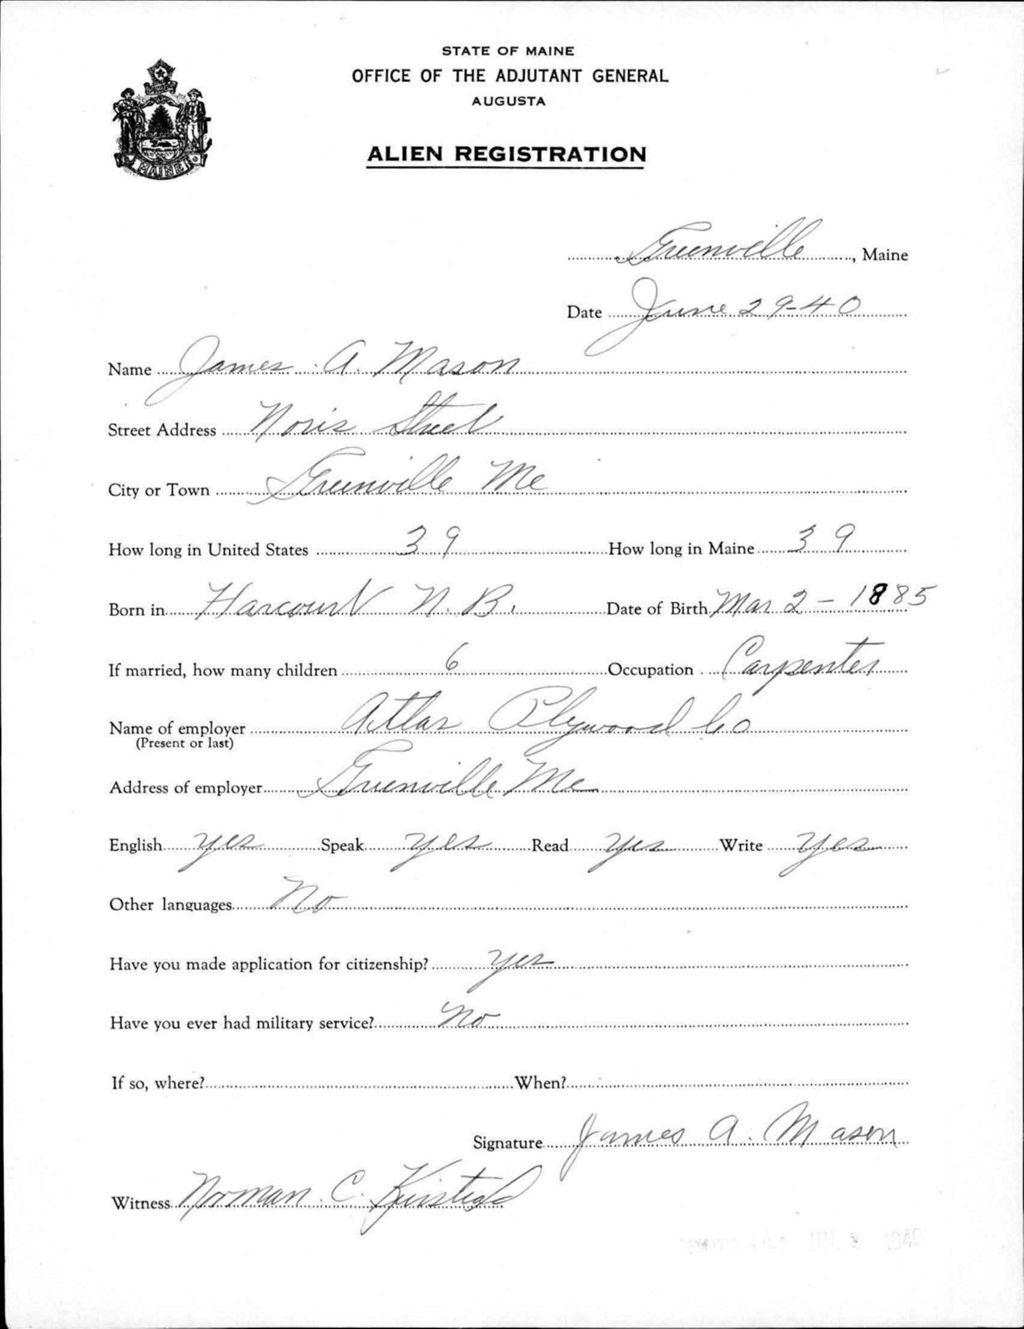 STATE OF MAINE
OFFICE OF THE ADJUTANT GENERAL
AUGUSTA
ALIEN REGISTRATION
MAINE
Greenville, Maine
Date June 29-40
Name James A. Mason
Street Address Noris Street
City or Town Greenville Me
How long in United States 39 How long in Maine 39
Born in Harcourt N.B. Date of Birth Mar 2 - 1885
If married, how many children 6 Occupation Carpenter
Name of employer Atlas Plywood Co
(Present or last)
Address of employer Greenville Me
English yes Speak yes Read yes Write yes
Other languages No
Have you made application for citizenship? yes
Have you ever had military service? No
If so, where? When?
Signature James A. Mason
Witness Norman C.